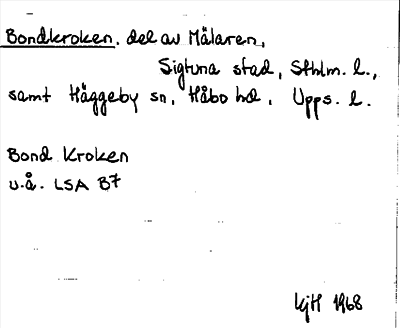 Bondkroken, del av Mälaren,
Sigtuna stad, Sthlm. l.,
samt Häggeby sn, Håbo hd, Upps. l.
Bond Kroken
u.å. LSA B7
KjH 1968